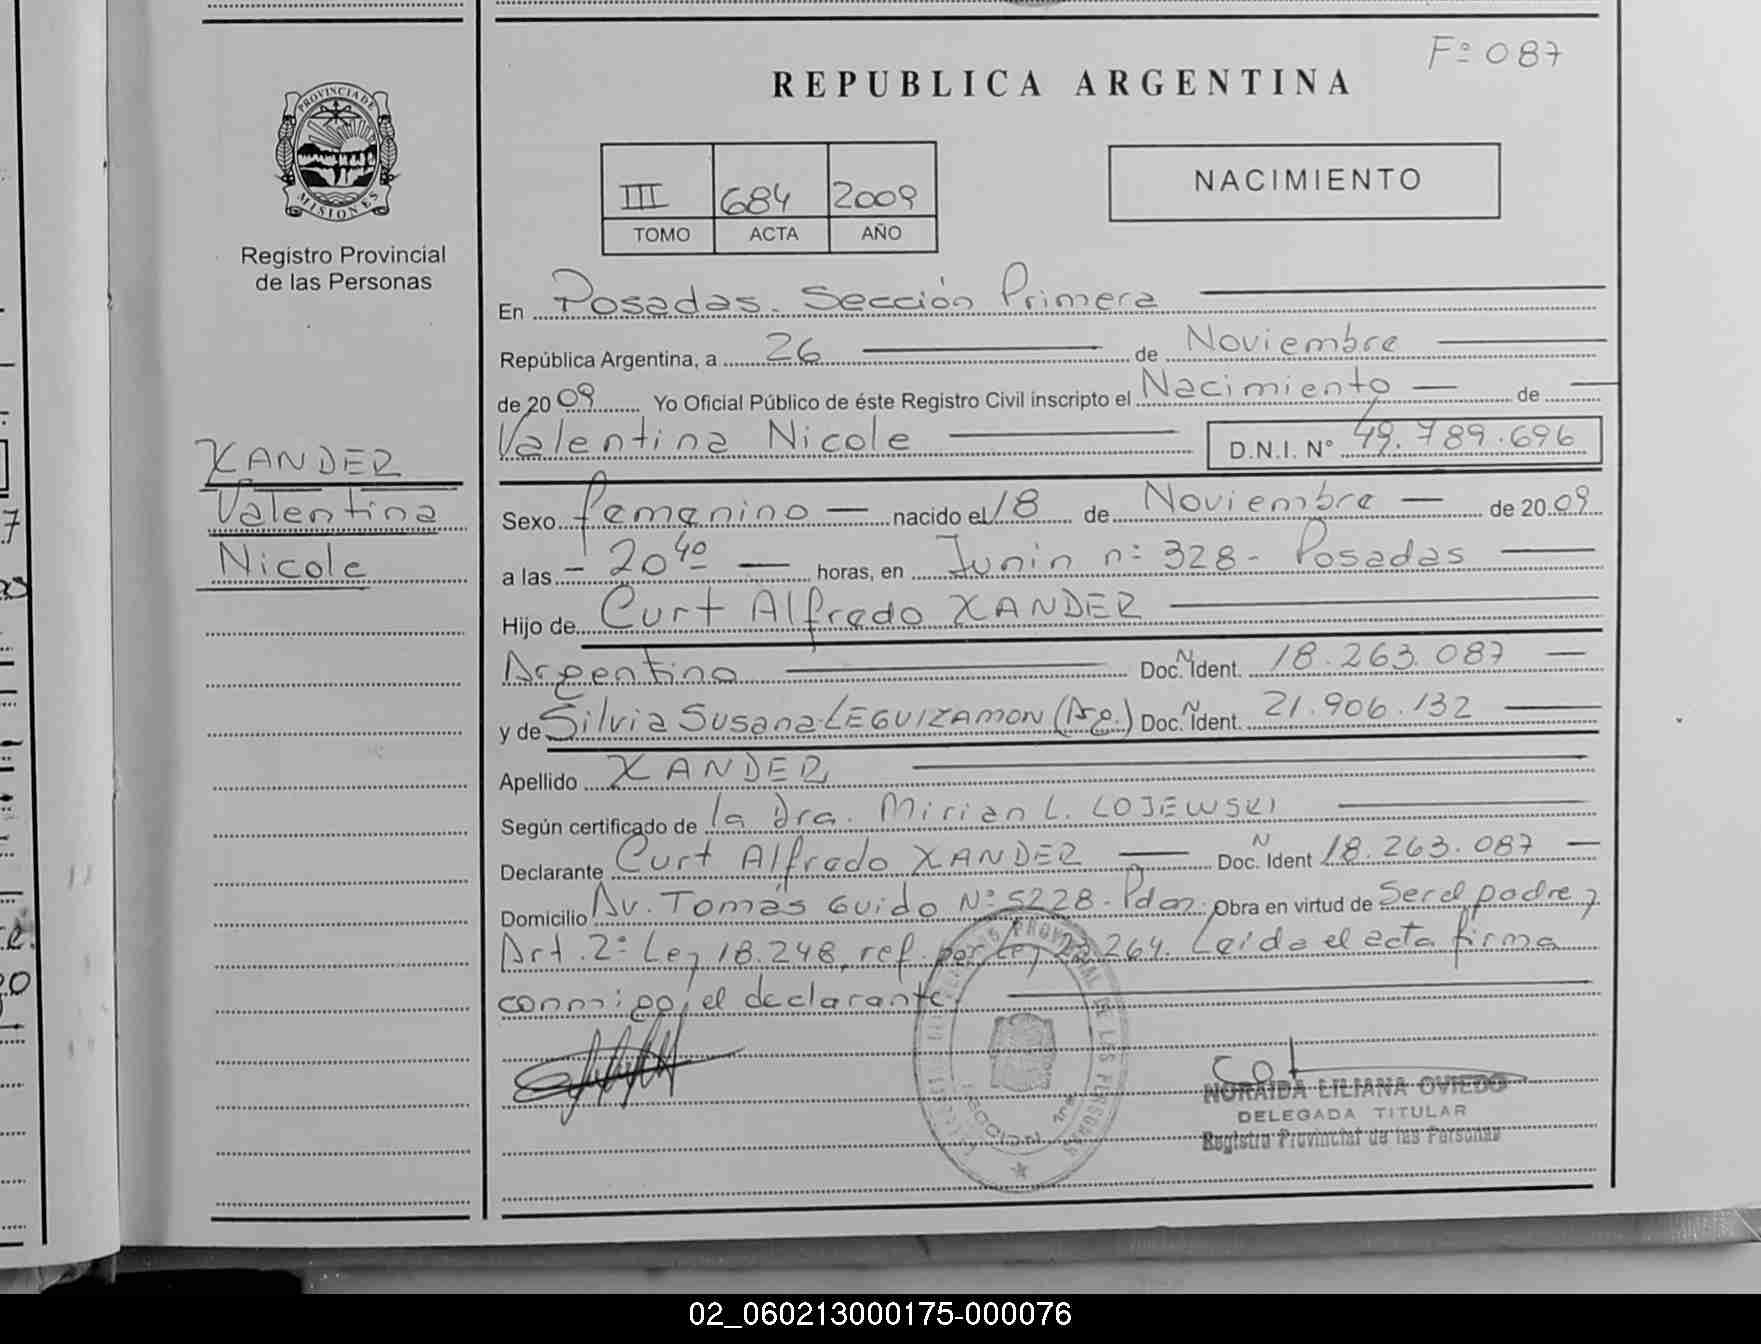 Fº 087
REPUBLICA ARGENTINA
PROVINCIA DE
MISIONES
Registro Provincial
de las Personas
III 684 2009
TOMO ACTA AÑO
NACIMIENTO
En Posadas. Sección Primera
República Argentina, a 26 de Noviembre
de 20 09 Yo Oficial Público de éste Registro Civil inscripto el Nacimiento de
Valentina Nicole D.N.I. N° 49.789.696
XANDER
Valentina
Nicole
Sexo femenino nacido el 18 de Noviembre de 20 09
a las - 20 40 horas, en Junin nº 328 - Posadas
Hijo de Curt Alfredo XANDER
Argentino Doc. N Ident. 18.263.087
y de Silvia Susana LEGUIZAMON (Arg.) Doc. N Ident. 21.906.132
Apellido XANDER
Según certificado de la Dra. Mirian L. LOJEWSKI
Declarante Curt Alfredo XANDER Doc. N Ident 18.263.087
Domicilio Av. Tomás Guido Nº 5228 - Pdas. Obra en virtud de Ser el padre y
Art. 2º Ley 18.248, ref. por Ley 23.264. Leída el acta firma
conmigo, el declarante.
SECCION 1ra
NORAIDA LILIANA OVIEDO
DELEGADA TITULAR
Registro Provincial de las Personas
02_060213000175-000076